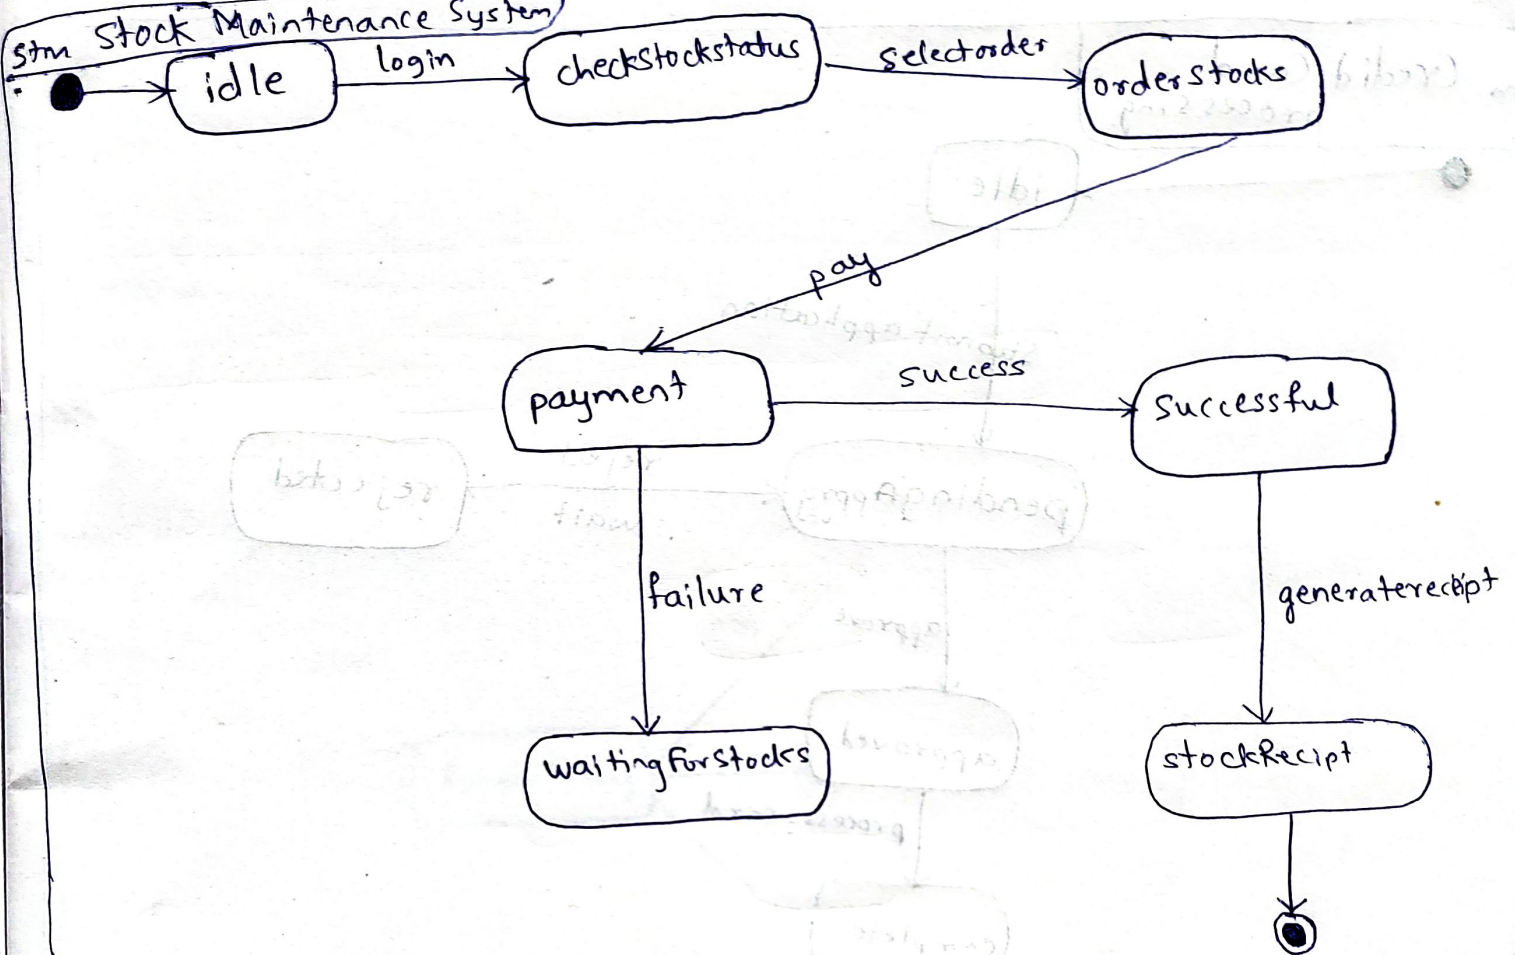 stm Stock Maintenance System
idle
login
checkstockstatus
selectorder
orderstocks
pay
payment
success
successful
failure
generatereceipt
waitingforstocks
stockRecipt